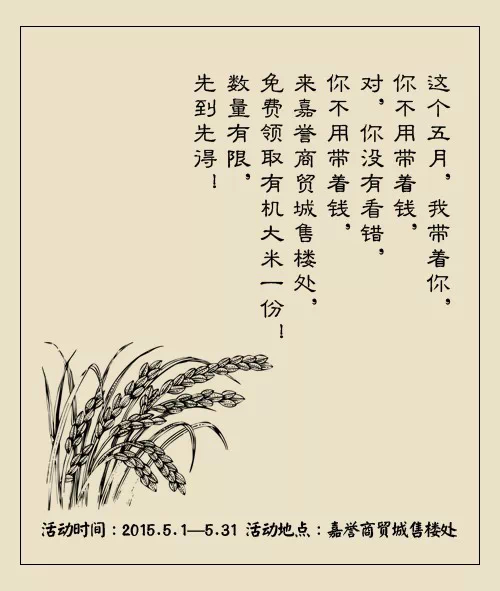 这个五月，我带着你，
你不用带着钱，
对，你没有看错，
你不用带着钱，
来嘉誉商贸城售楼处，
免费领取有机大米一份！
数量有限，
先到先得！
活动时间：2015.5.1—5.31 活动地点：嘉誉商贸城售楼处